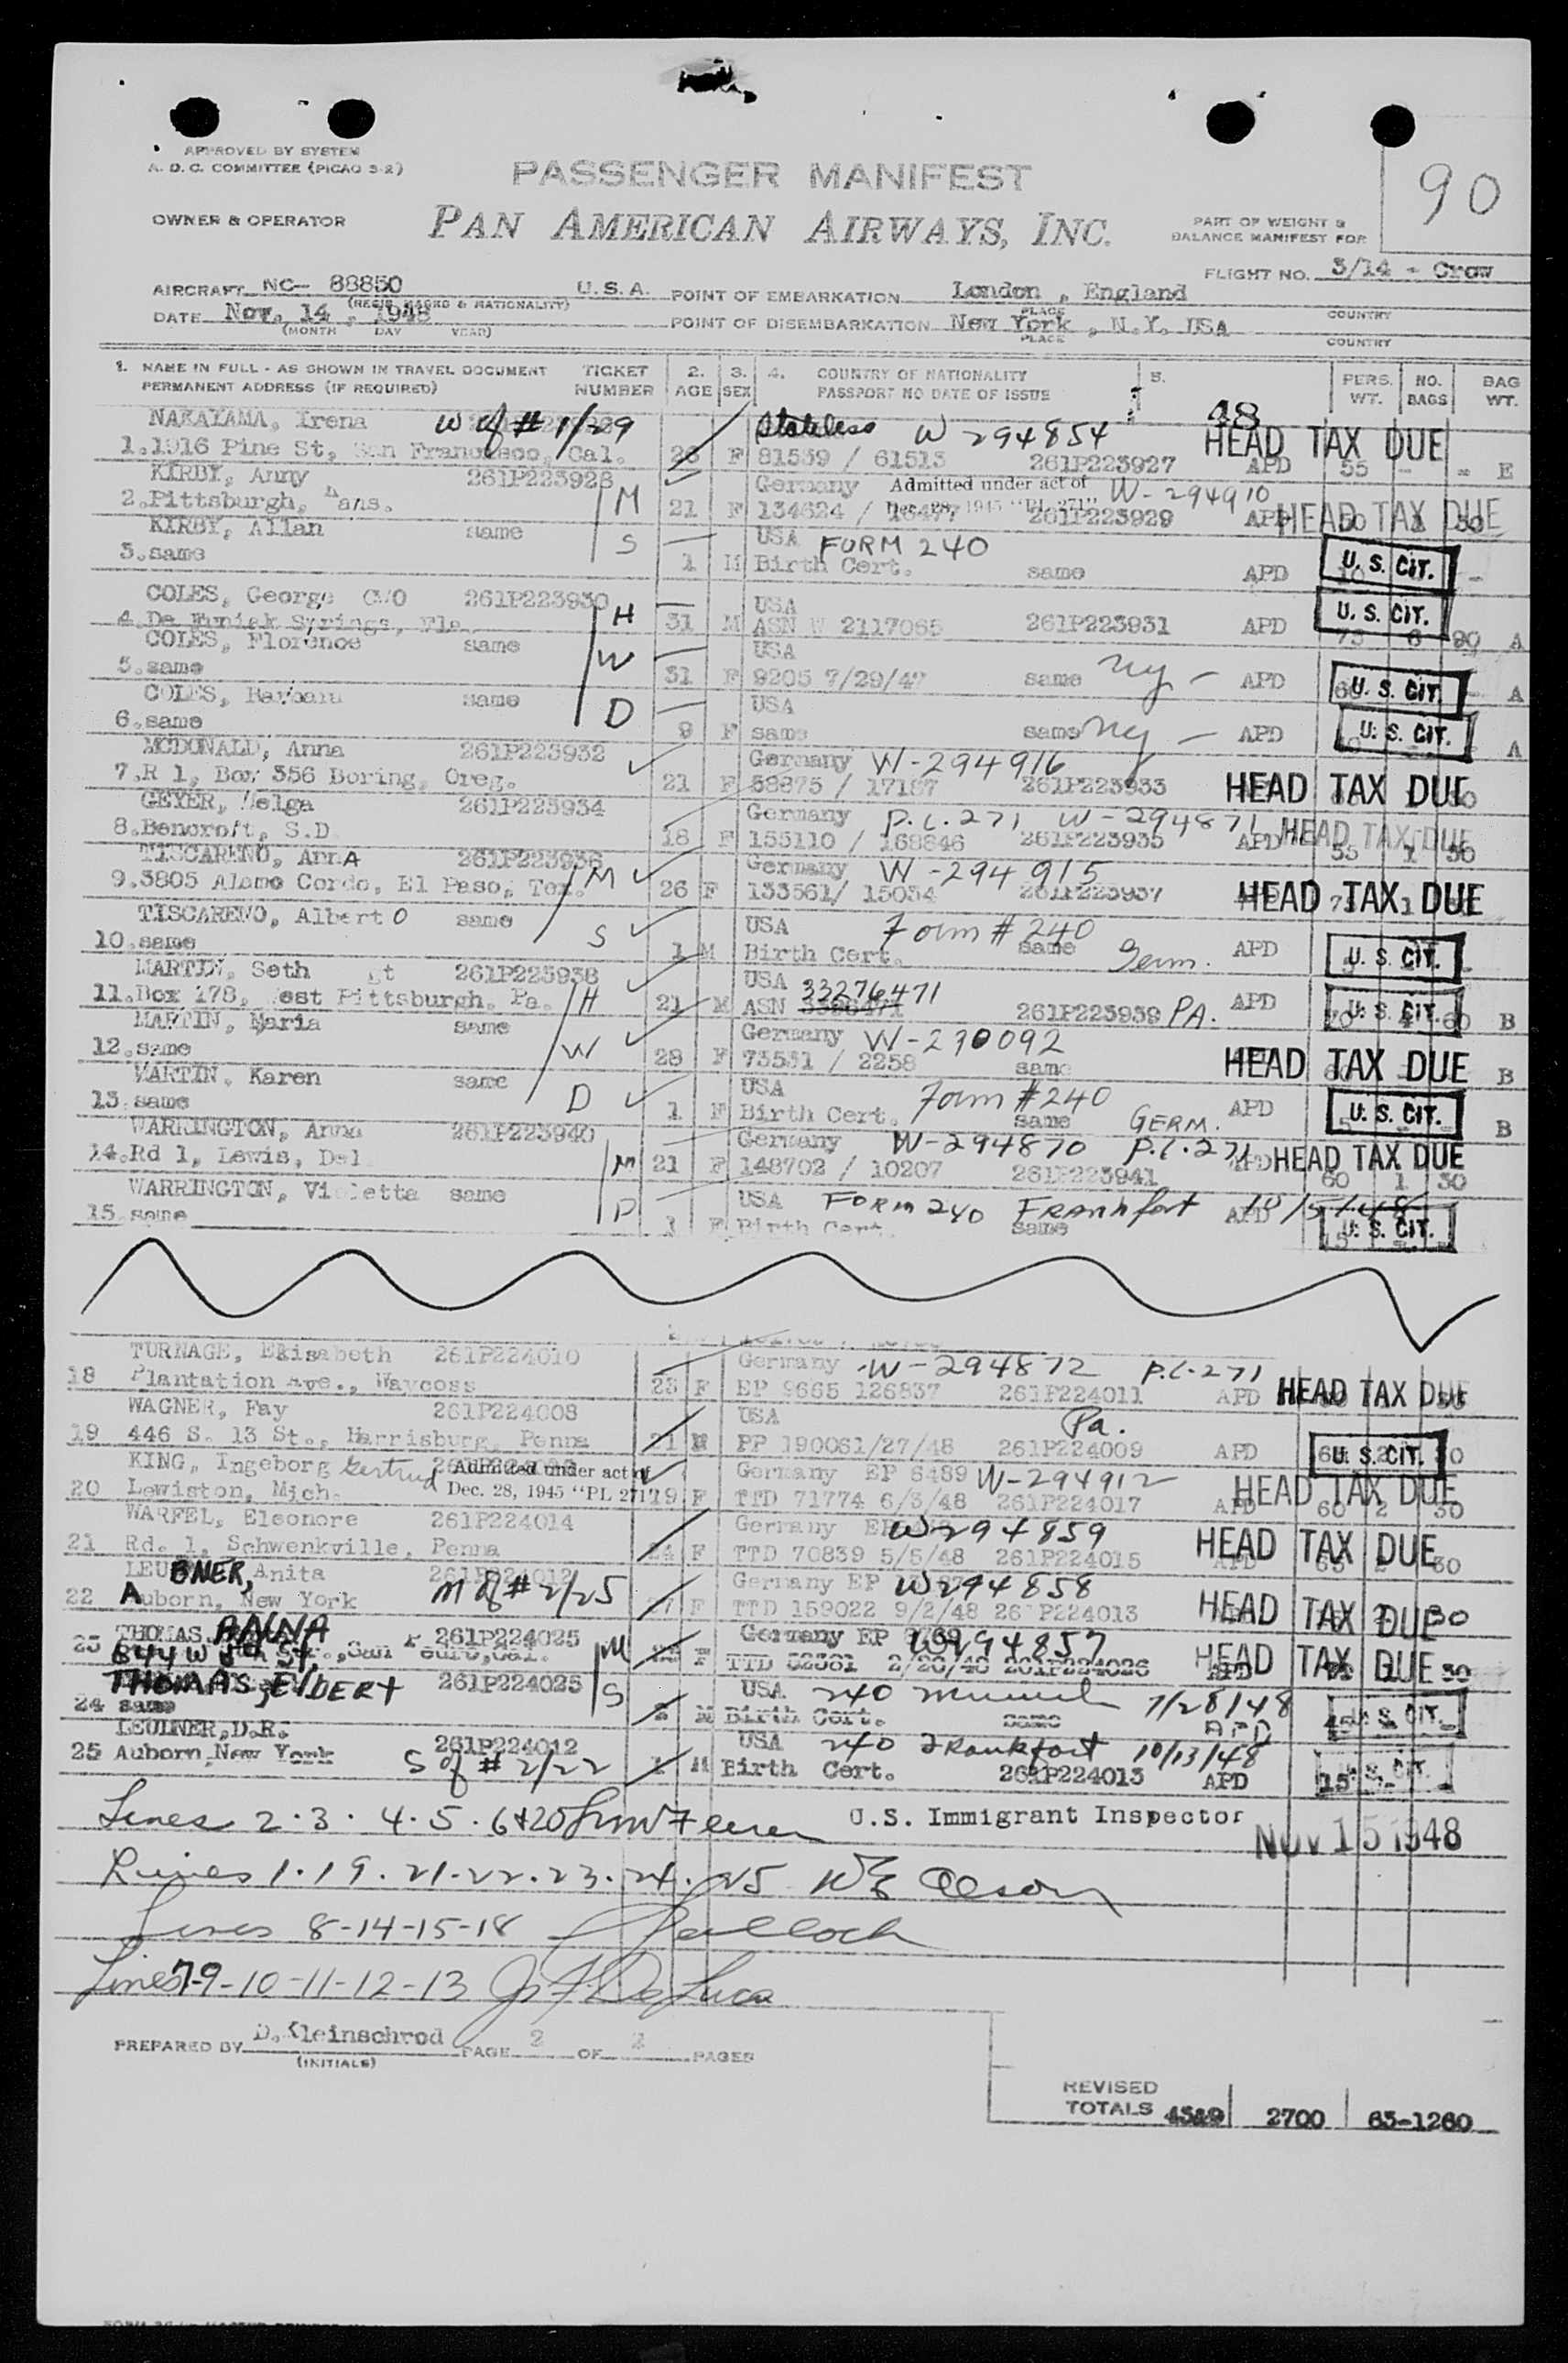 90
APPROVED BY SYSTEM
A. D. C. COMMITTEE (PICAO 3-2)
PASSENGER MANIFEST
OWNER & OPERATOR PAN AMERICAN AIRWAYS, INC.
PART OF WEIGHT &
BALANCE MANIFEST FOR
FLIGHT NO. 3/14 - Crow
AIRCRAFT NC- 88850 U.S.A. POINT OF EMBARKATION London, England
(REGIS. MARKS & NATIONALITY) PLACE COUNTRY
DATE Nov. 14, 1948 POINT OF DISEMBARKATION New York, N.Y. USA
(MONTH DAY YEAR) PLACE COUNTRY
1. NAME IN FULL - AS SHOWN IN TRAVEL DOCUMENT TICKET 2. 3. 4. COUNTRY OF NATIONALITY 5. PERS. NO. BAG
PERMANENT ADDRESS (IF REQUIRED) NUMBER AGE SEX PASSPORT NO DATE OF ISSUE WT. BAGS WT.
48
NAKAYAMA, Irena W of # 1/29 Stateless W 294854 HEAD TAX DUE
1. 1916 Pine St, San Francisco, Cal. F 81539 / 61513 261P223927 APD 55 - - E
KIRBY, Anny 261P223928 M Germany Admitted under act of W-294910
2. Pittsburgh, Kans. 21 F 134624 / 16477 Dec. 28, 1945 "PL 271" 261P223929 APD HEAD TAX DUE
KIRBY, Allan same S USA FORM 240
3. same 1 M Birth Cert. same APD U. S. CIT. -
COLES, George CWO 261P223930 H USA
4. De Funiak Springs, Fla 31 M ASN W 2117065 261P223931 APD U. S. CIT. 75 6 90 A
COLES, Florence same W USA
5. same 31 F 9205 7/29/47 same NY - APD U. S. CIT. - A
COLES, Barbara same D USA
6. same 9 F same same NY - APD U. S. CIT. - A
MCDONALD, Anna 261P223932 Germany W-294916
7. R 1, Box 356 Boring, Oreg. 21 F 58875 / 17187 261P223933 HEAD TAX DUE
GEYER, Helga 261P223934 Germany P.L. 271 W-294871
8. Bencroft, S.D 18 F 155110 / 168846 261P223935 APD HEAD TAX DUE 55 1 30
TISCARENO, AnnA 261P223936 M Germany W-294915
9. 3805 Alamo Cordo, El Paso, Tex. 26 F 133561/ 15034 261P223937 HEAD TAX DUE
TISCARENO, Albert O same S USA Form # 240
10. same 1 M Birth Cert. same Germ. APD U. S. CIT. -
MARTIN, Seth 261P223938 H USA 33276471
11. Box 178, West Pittsburgh. Pa. 21 M ASN 3326471 261P223939 PA. APD U. S. CIT. B
MARTIN, Maria same W Germany W-230092
12. same 28 F 73531 / 2258 same HEAD TAX DUE B
MARTIN, Karen same D USA Form #240
13. same 1 F Birth Cert. same GERM. APD U. S. CIT. B
WARRINGTON, Anna 261P223940 M Germany W-294870 P.L. 271
14. Rd 1, Lewis, Del 21 F 148702 / 10207 261P223941 APD HEAD TAX DUE 60 1 30
WARRINGTON, Violetta same D USA FORM 240 FRANKfort 10/15/48
15. same 1 F Birth Cert. same APD U. S. CIT.
TURNAGE, Elisabeth 261P224010 Germany W-294872 P.L. 271
18 Plantation Ave., Waycoss 23 F EP 9665 126837 261P224011 APD HEAD TAX DUE
WAGNER, Fay 261P224008 USA Pa.
19 446 S. 13 St., Harrisburg, Penna 21 PP 190061/27/48 261P224009 APD U. S. CIT.
KING, Ingeborg Gertrud Admitted under act of Germany EP 8489 W-294912
20 Lewiston, Mich. Dec. 28, 1945 "PL 271" 19 F TTD 71774 6/3/48 261P224017 APD HEAD TAX DUE 60 2 30
WARFEL, Eleonore 261P224014 Germany W294859
21 Rd. 1, Schwenkville, Penna 24 F TTD 70839 5/5/48 261P224015 HEAD TAX DUE
LEUBNER, Anita 261P224012 M of # 2/25 Germany EP W294858
22 Auborn, New York F TTD 159022 9/2/48 261P224013 HEAD TAX DUE 30
THOMAS, 261P224025 M Germany EP W294857
23 644 W 8th St., San Pedro, Cal. F TTD 52361 2/26/48 261P224026 HEAD TAX DUE 30
THOMAS, ElDERt 261P224025 S USA 240 Munich 7/28/48
24 same M Birth Cert. same APD U. S. CIT.
LEUBNER, D.R. 261P224012 USA 240 Frankfort 10/13/48
25 Auborn, New York S of # 2/22 1 M Birth Cert. 261P224013 APD 15 U. S. CIT.
Lines 2.3.4.5.6 & 20 U.S. Immigrant Inspector NOV 15 1948
Lines 1.19.21.22.23.24.25 W E Olson
Lines 8-14-15-18
Lines 7-9-10-11-12-13 J. F. DeLuca
PREPARED BY D. Kleinschrod PAGE 2 OF 2 PAGES
(INITIALS)
REVISED
TOTALS 45&9 2700 63-1260